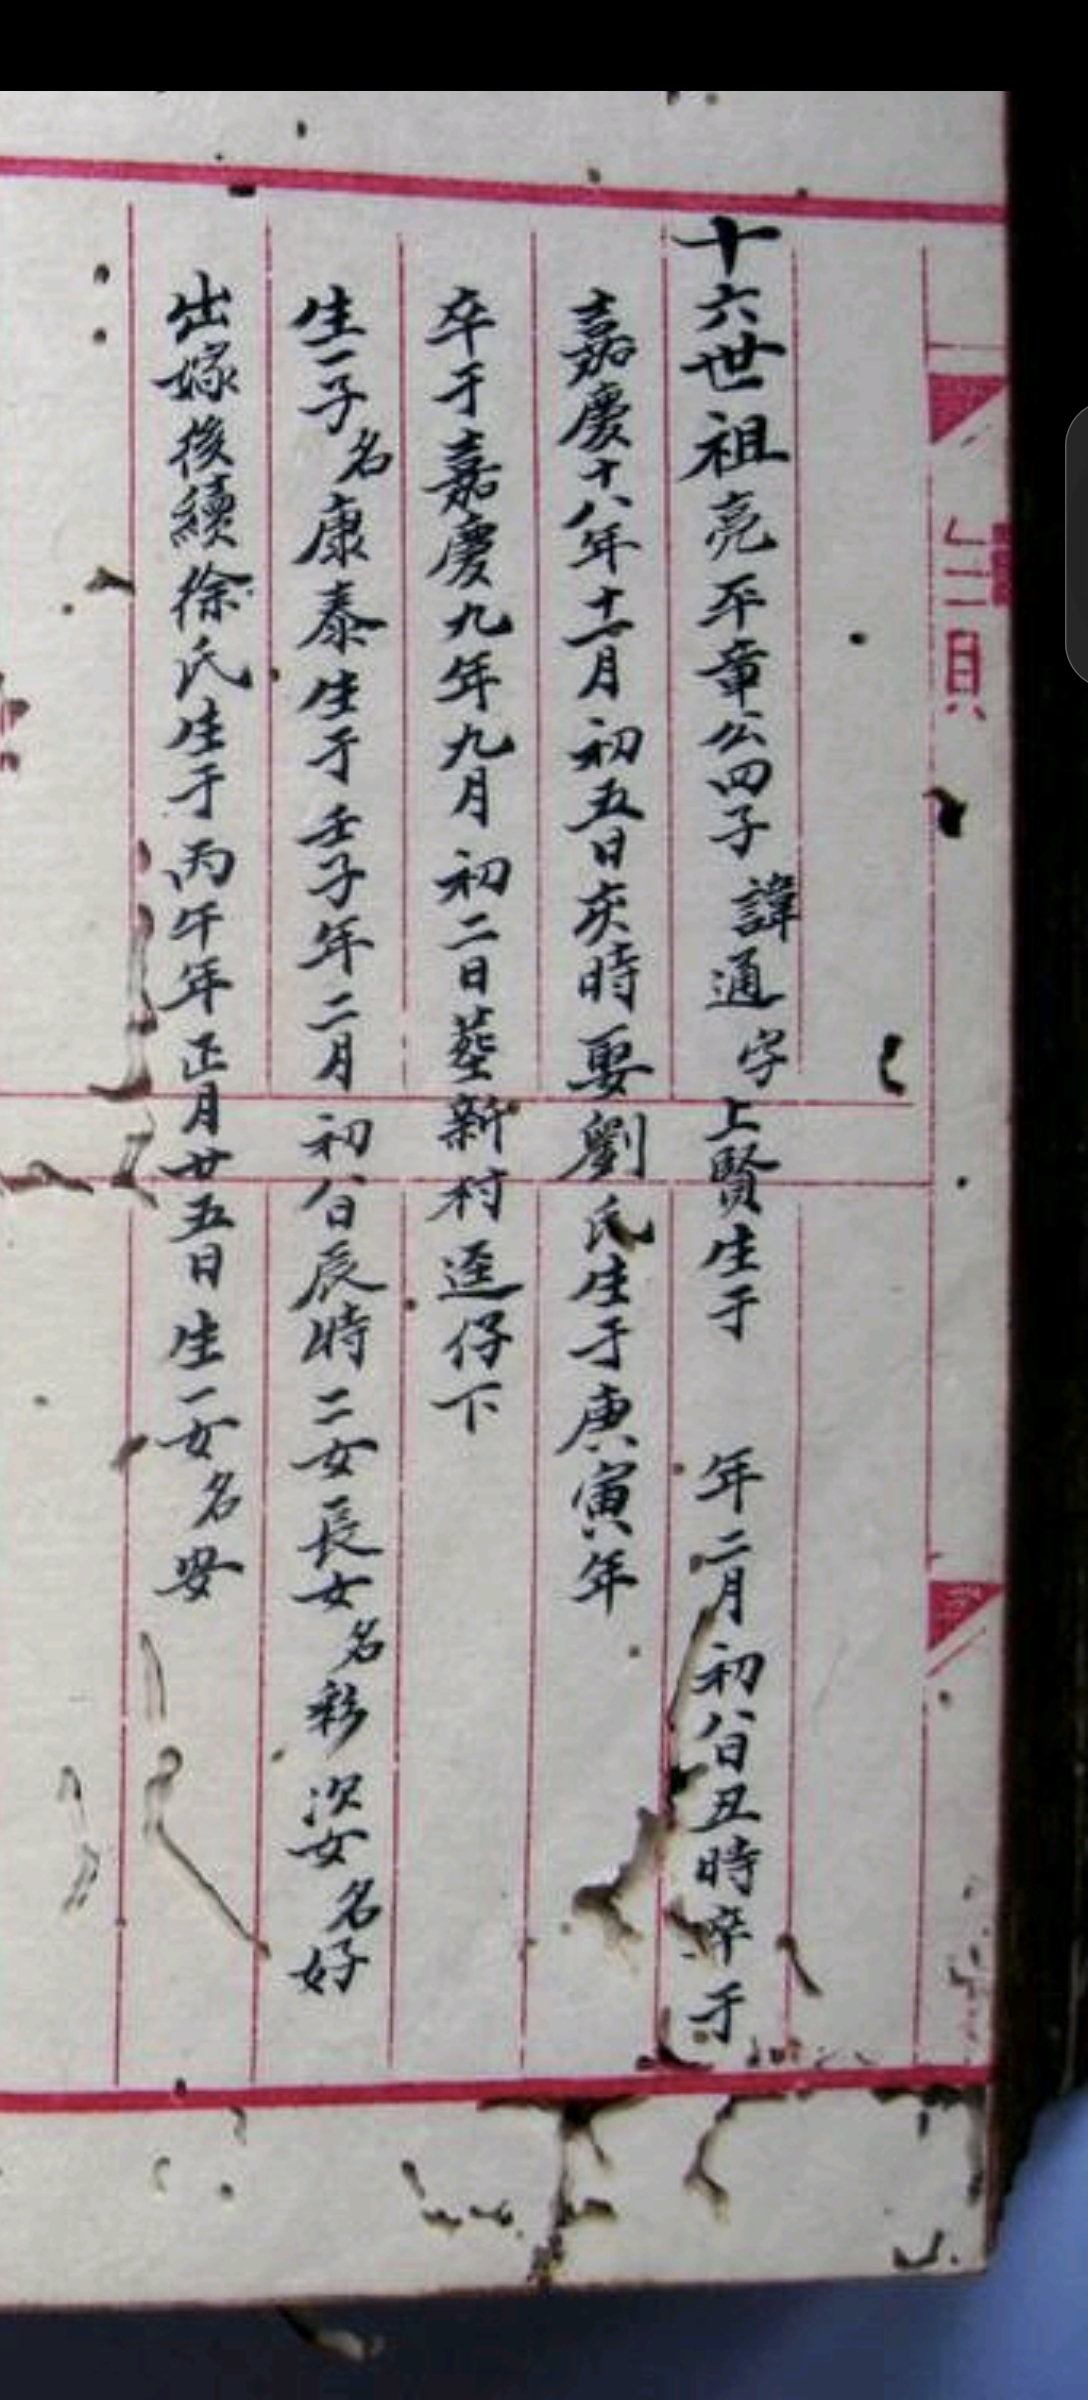 十六世祖亮平章公四子諱通字上賢生于 年二月初八日丑時卒于
嘉慶十八年十一月初五日亥時娶劉氏生于庚寅年
卒于嘉慶九年九月初二日葬新村逕仔下
生一子名康泰生于壬子年二月初八日辰時二女長女名彩次女名好
出嫁後續徐氏生于丙午年正月廿五日生一女名安